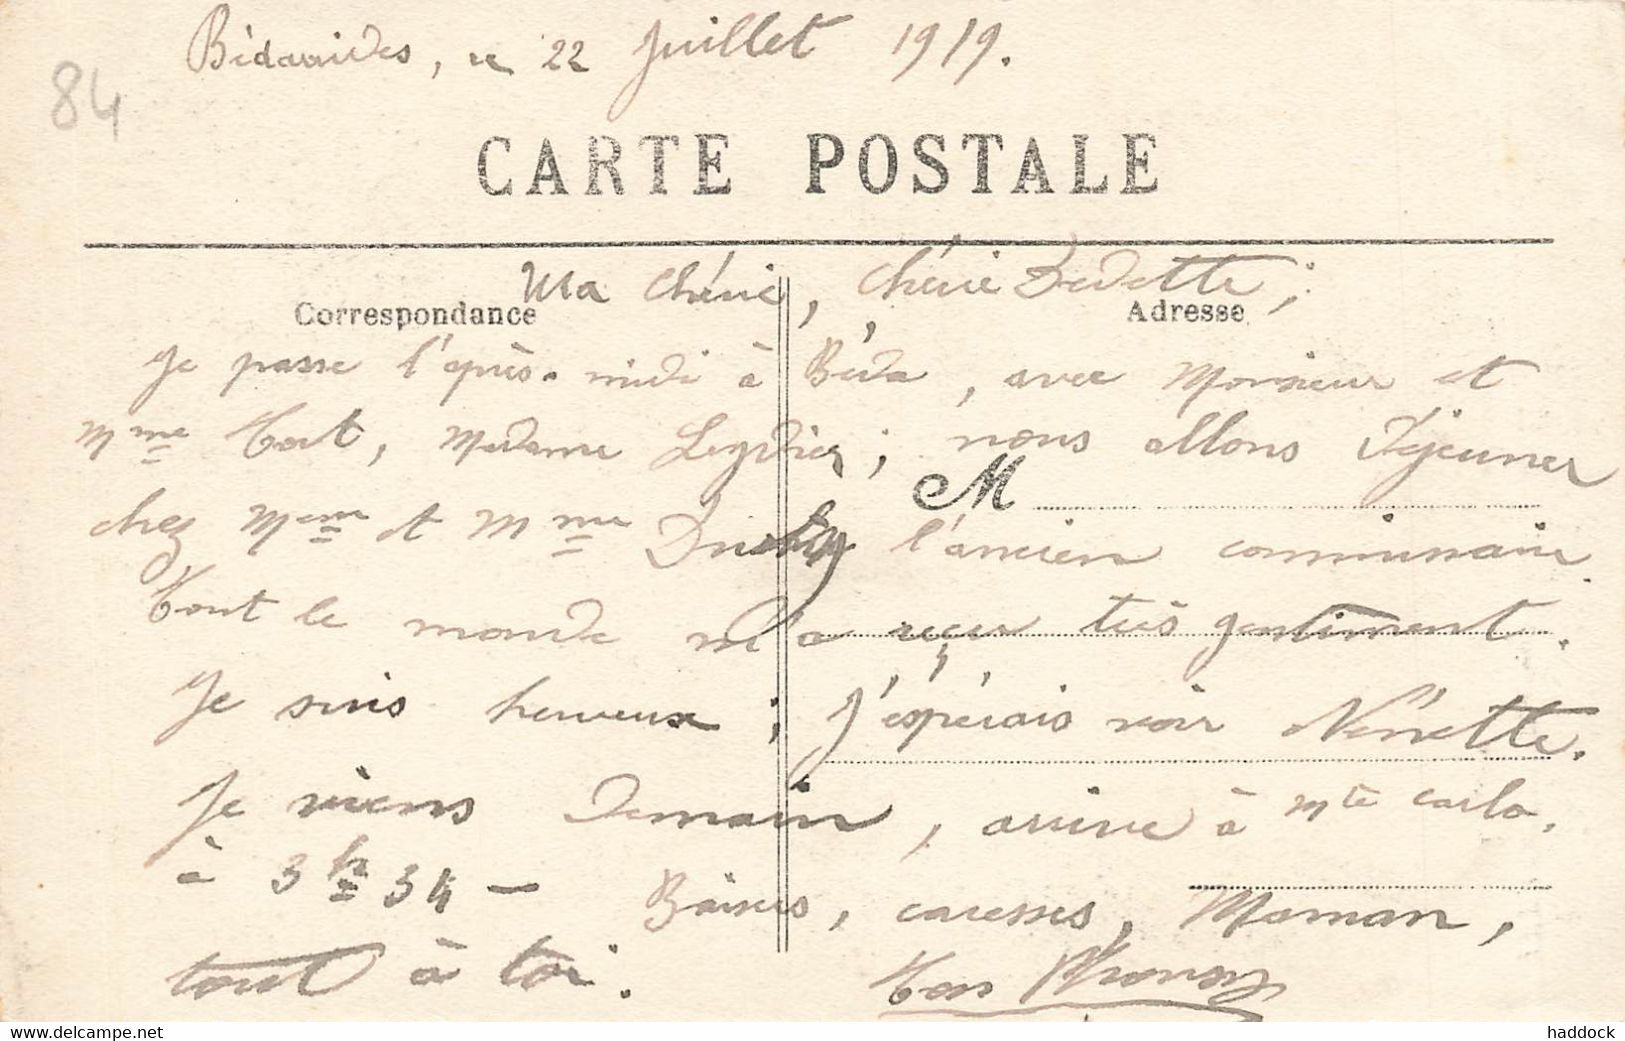 Bédarrides, le 22 Juillet 1919.
84
CARTE POSTALE
Ma Chérie, Chérie Bedette;
Correspondance
Adresse
Je passe l'après-midi à Béda, avec Monsieur et
Mme Tort, Madame Leydier; nous allons déjeuner
M
chez et Mme l'ancien commissaire.
Tout le monde m'a reçu très gentiment.
Je suis heureux; J'espérais voir Nénette.
Je viens Demain, arrive à Mte Carlo.
à 3h 34 - Baisers, caresses, Maman,
tout à toi. Ton
www.delcampe.net
haddock